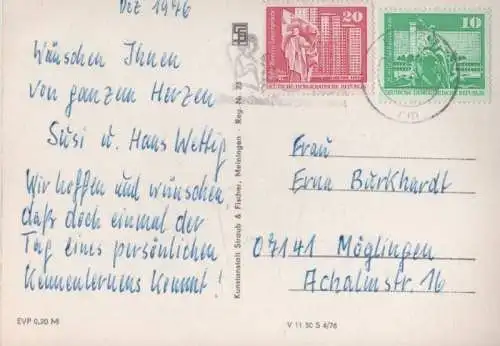 Dez 1976
Wünschen Ihnen
von ganzem Herzen
Susi u. Hans Wettig
Wir hoffen und wünschen
daß doch einmal der
Tag eines persönlichen
Kennenlernens kommt!
EVP 0,20 M
Kunstanstalt Straub & Fischer, Meiningen · Reg.-Nr. 23
V 11 50 S 4/76
20
DEUTSCHE DEMOKRATISCHE REPUBLIK
10
DEUTSCHE DEMOKRATISCHE REPUBLIK
Frau
Erna Burkhardt
07141 Möglingen
Achalmstr. 16